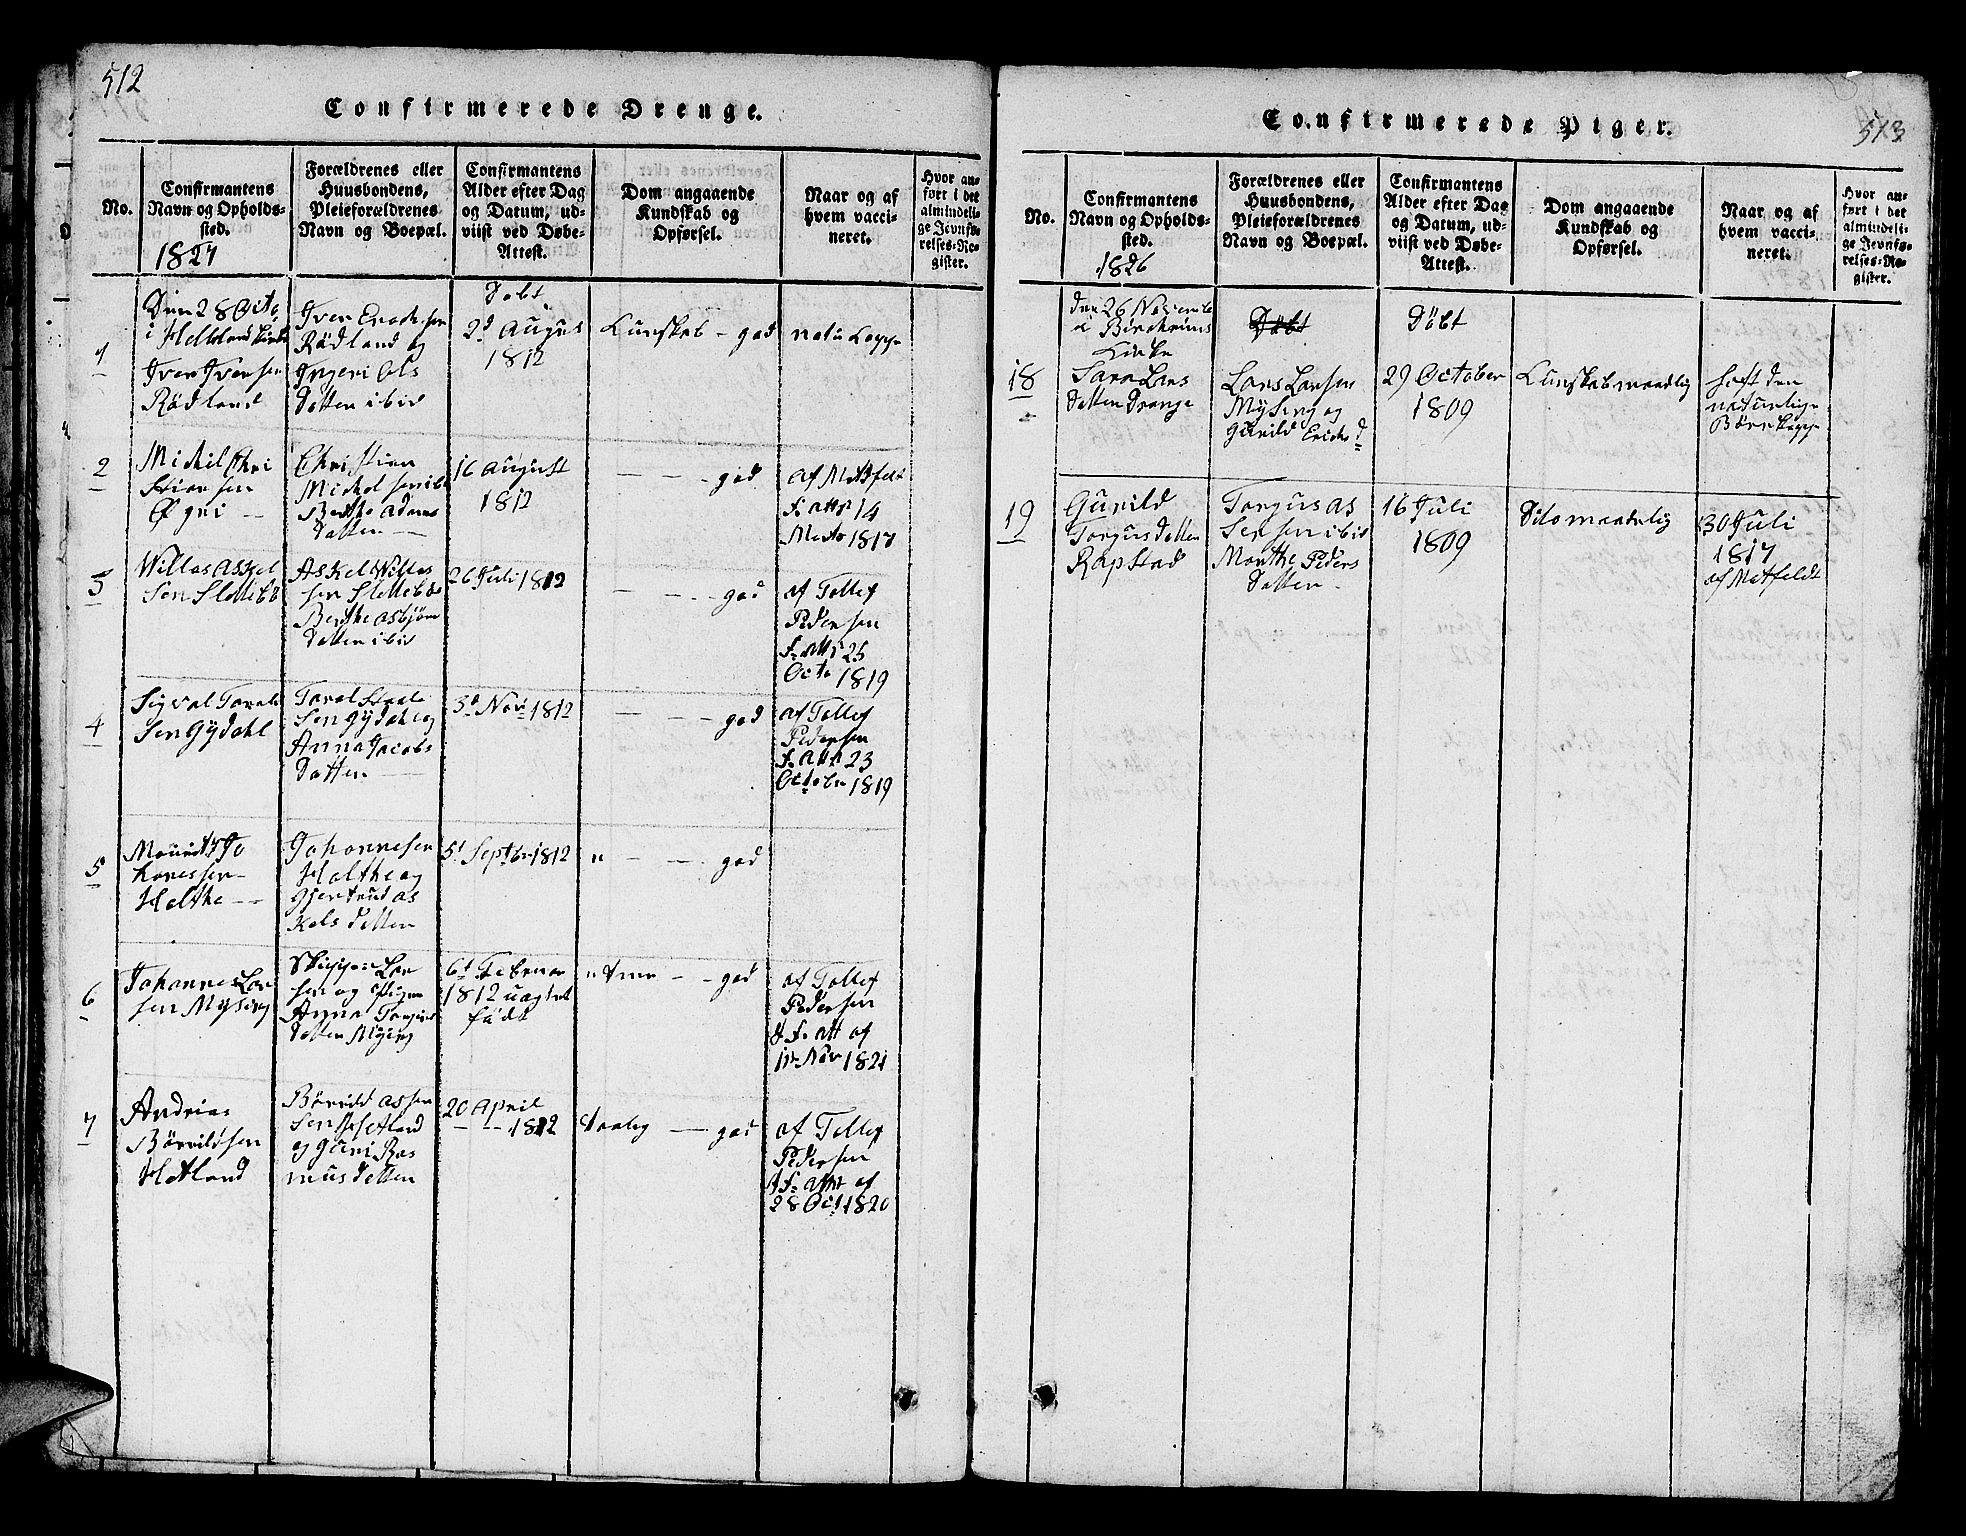 512
Confirmerede Drenge.
No.
Confirmantens
Navn og Opholds-
sted.
1827
Forældrenes eller
Huusbondens,
Pleieforældrenes
Navn og Boepæl.
Confirmantens
Alder efter Dag
og Datum, ud-
viist ved Døbe-
Attest.
Dom angaaende
Kundskab og
Opførsel.
Naar og af
hvem vacci-
neret.
Hvor an-
ført i det
almindeli-
ge Jevnfø-
relses-Re-
gister.
1
Den 28 Octo
i Helleland
Iver Iversen
Rödland
Iver Erichsen
Rödland og
Ingeri Ols
Datter ibid
Døbt
2d August
1812
Kunskab - god
2
Michel Chri
stiansen
Øgrei
Christian
Michelsen ibid
Berthe Adams
Datter
16 August
1812
- - - god
af Metzfeldt
f. att 14
1817
3
Villas Askel
sen Slettebö
Askel Villas
sen Slettebö
Berthe Asbjörn
Datter ibid
26 Juli 1812
- - - god
af Tollef
Pedersen
f. att 25
Octo 1819
4
Sigval Torals
sen Gÿdahl
Toral
sen Gÿdal og
Anna Jacobs
Datter
3d Nov 1812
- - - god
af Tollef
Pedersen
f. att 23
October 1819
5
Jo
hanessen
Helthe
Johannesen
Halthe og
Gjertrud As
kels Datter
5t Septbr 1812
" - - - god
6
Johannes Lar
sen Mysing
Lar
sen og Pigen
Anna
Datter
6t Februar
1812 uægte
født
- - god
af Tollef
Pedersen
f. att af
11 Nov 1821
7
Andreas
Börvildsen
Hetland
Börvild Assen
sen Hetland
og Guri Ras
mus Datter
20 April
1812
- god
af Tollef
Pedersen
f. att af
28 Oct 1820
513
Confirmerede Piger.
No.
Confirmantens
Navn og Opholds-
sted.
1826
Forældrenes eller
Huusbondens,
Pleieforældrenes
Navn og Boepæl.
Confirmantens
Alder efter Dag
og Datum, ud-
viist ved Døbe-
Attest.
Dom angaaende
Kundskab og
Opførsel.
Naar og af
hvem vacci-
neret.
Hvor an-
ført i det
almindeli-
ge Jevnfø-
relses-Re-
gister.
18
den 26 Novemb
i Birchrims
Kirke
Sara Lars
Datter Drange
Døbt
Lars Larsen
Mÿsing og
Gunild Erichs d
Døbt
29 October
1809
Kunskab maadlig
haft den
naturlige
Börnekopp
19
Gunild
Torgus datter
Rapstad
Torgus As
sensen ibid
Marthe Peders
Datter
16 Juli
1809
Dito maadelig
30 Juli
1817
af Metfeldt